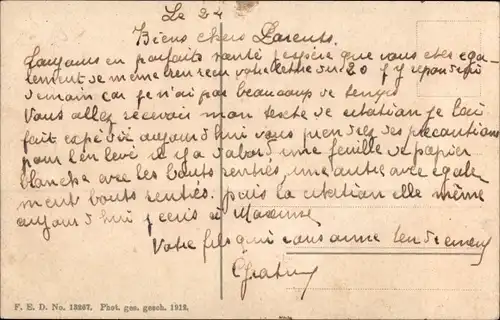 Le 24
Biens chers Parents.
Toujours en parfaite santé j'espère que vous etes ega-
lement de meme bien recu votre lettre du 20 j'y repondrai
demain car je n'ai pas beaucoup de temps
Vous allez recevoir mon texte de citation je l'ai
fait expédié aujourd hui vous prendrez des precautions
pour l'enlevé il y a d'abord une feuille de papier
blanche avec les bouts rentrés, une autre avec egale-
ment bouts rentrés. puis la citation elle même
aujourd hui j ecris à
Votre fils qui vous aime tendrement
F. E. D. No. 13267. Phot. ges. gesch. 1912.